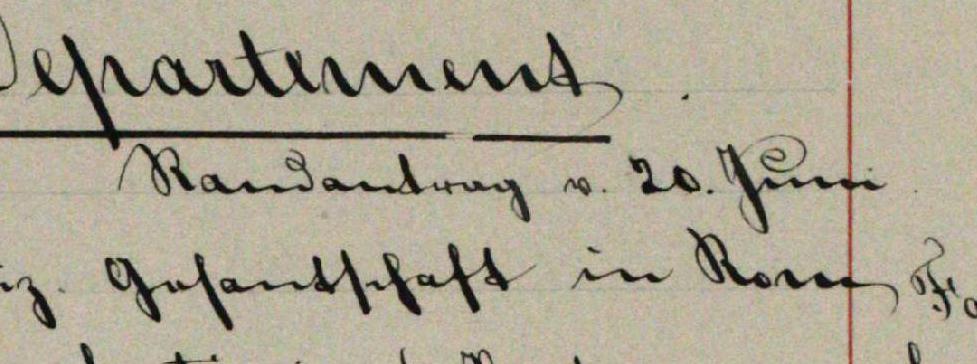 Departement.
Randantrag v. 20. Juni
iz. Gesantschaft in Rom